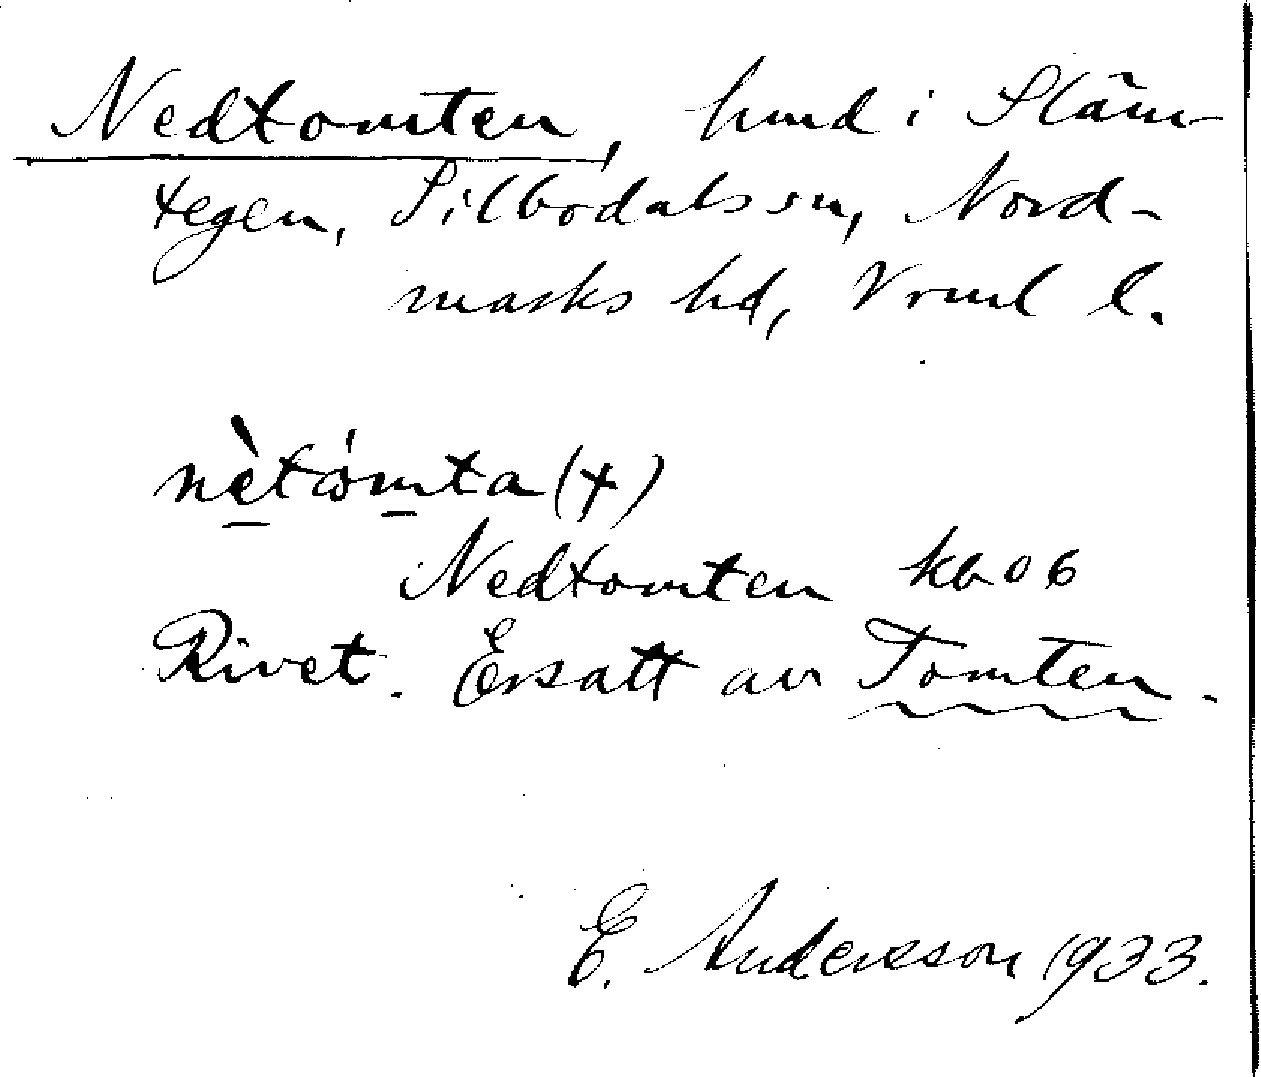 Nedtomten, hmd i Släm-
tegen, Silbodals sn, Nord-
marks hd, Vrml l.
nètómta(+)
Nedtomten kb 06
Rivet. Ersatt av Tomten.
E. Andersson 1933.